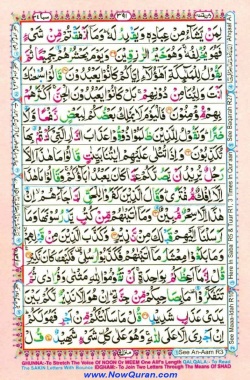 سبا ٣٤
لِمَنْ يَّشَآءُ مِنْ عِبَادِهٖ وَيَقْدِرُ لَهٗ ؕ وَمَآ اَنْفَقْتُمْ مِّنْ شَيْءٍ
فَهُوَ يُخْلِفُهٗ ۚ وَهُوَ خَيْرُ الرّٰزِقِيْنَ وَيَوْمَ يَحْشُرُهُمْ جَمِيْعًا ثُمَّ
يَقُوْلُ لِلْمَلٰٓئِكَةِ اَهٰٓؤُلَآءِ اِيَّاكُمْ كَانُوْا يَعْبُدُوْنَ قَالُوْا سُبْحٰنَكَ
اَنْتَ وَلِيُّنَا مِنْ دُوْنِهِمْ ۚ بَلْ كَانُوْا يَعْبُدُوْنَ الْجِنَّ ۚ اَكْثَرُهُمْ
بِهِمْ مُّؤْمِنُوْنَ فَالْيَوْمَ لَا يَمْلِكُ بَعْضُكُمْ لِبَعْضٍ نَّفْعًا وَّلَا
ضَرًّا ؕ وَنَقُوْلُ لِلَّذِيْنَ ظَلَمُوْا ذُوْقُوْا عَذَابَ النَّارِ الَّتِيْ كُنْتُمْ بِهَا
تُكَذِّبُوْنَ وَاِذَا تُتْلٰى عَلَيْهِمْ اٰيٰتُنَا بَيِّنٰتٍ قَالُوْا مَا هٰذَآ اِلَّا
رَجُلٌ يُّرِيْدُ اَنْ يَّصُدَّكُمْ عَمَّا كَانَ يَعْبُدُ اٰبَآؤُكُمْ ۚ وَقَالُوْا مَا هٰذَآ
اِلَّآ اِفْكٌ مُّفْتَرًى ؕ وَقَالَ الَّذِيْنَ كَفَرُوْا لِلْحَقِّ لَمَّا جَآءَهُمْ ۙ اِنْ
هٰذَآ اِلَّا سِحْرٌ مُّبِيْنٌ وَمَآ اٰتَيْنٰهُمْ مِّنْ كُتُبٍ يَّدْرُسُوْنَهَا وَمَآ
اَرْسَلْنَآ اِلَيْهِمْ قَبْلَكَ مِنْ نَّذِيْرٍ وَكَذَّبَ الَّذِيْنَ مِنْ قَبْلِهِمْ
وَمَا بَلَغُوْا مِعْشَارَ مَآ اٰتَيْنٰهُمْ فَكَذَّبُوْا رُسُلِيْ فَكَيْفَ كَانَ
نَكِيْرِ قُلْ اِنَّمَآ اَعِظُكُمْ بِوَاحِدَةٍ ۚ اَنْ تَقُوْمُوْا لِلّٰهِ مَثْنٰى وَفُرَادٰى ثُمَّ
تَتَفَكَّرُوْا مَا بِصَاحِبِكُمْ مِّنْ جِنَّةٍ ؕ اِنْ هُوَ اِلَّا نَذِيْرٌ لَّكُمْ بَيْنَ يَدَيْ
عَذَابٍ شَدِيْدٍ قُلْ مَا سَاَلْتُكُمْ مِّنْ اَجْرٍ فَهُوَ لَكُمْ ؕ
اِنْ اَجْرِيَ اِلَّا عَلَى اللّٰهِ ۚ وَهُوَ عَلٰى كُلِّ شَيْءٍ شَهِيْدٌ قُلْ اِنَّ
See An-Aam R3
GHUNNA- To Stretch The Voice Of NOON Or MEEM One Alif's Length QALQALA- To Read
The SAKIN Letters With Bounce IDGHAM- To Join Two Letters Through The Means Of SHAD
www.NowQuran.com